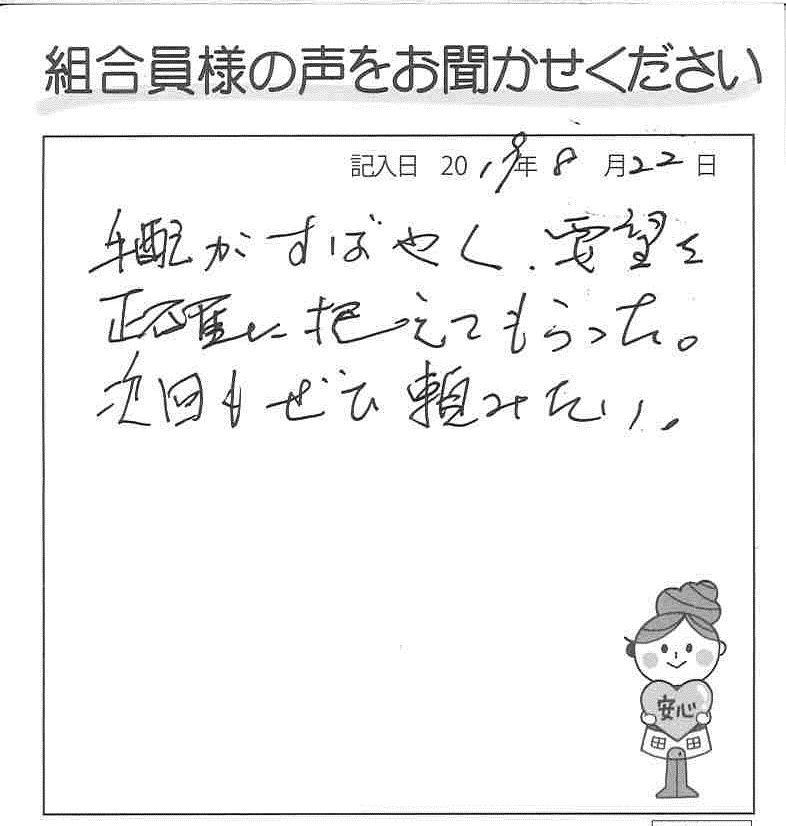 組合員様の声をお聞かせください
記入日 2019年8月22日
手配がすばやく、要望を
正確に把えてもらった。
次回もぜひ頼みたい。
安心